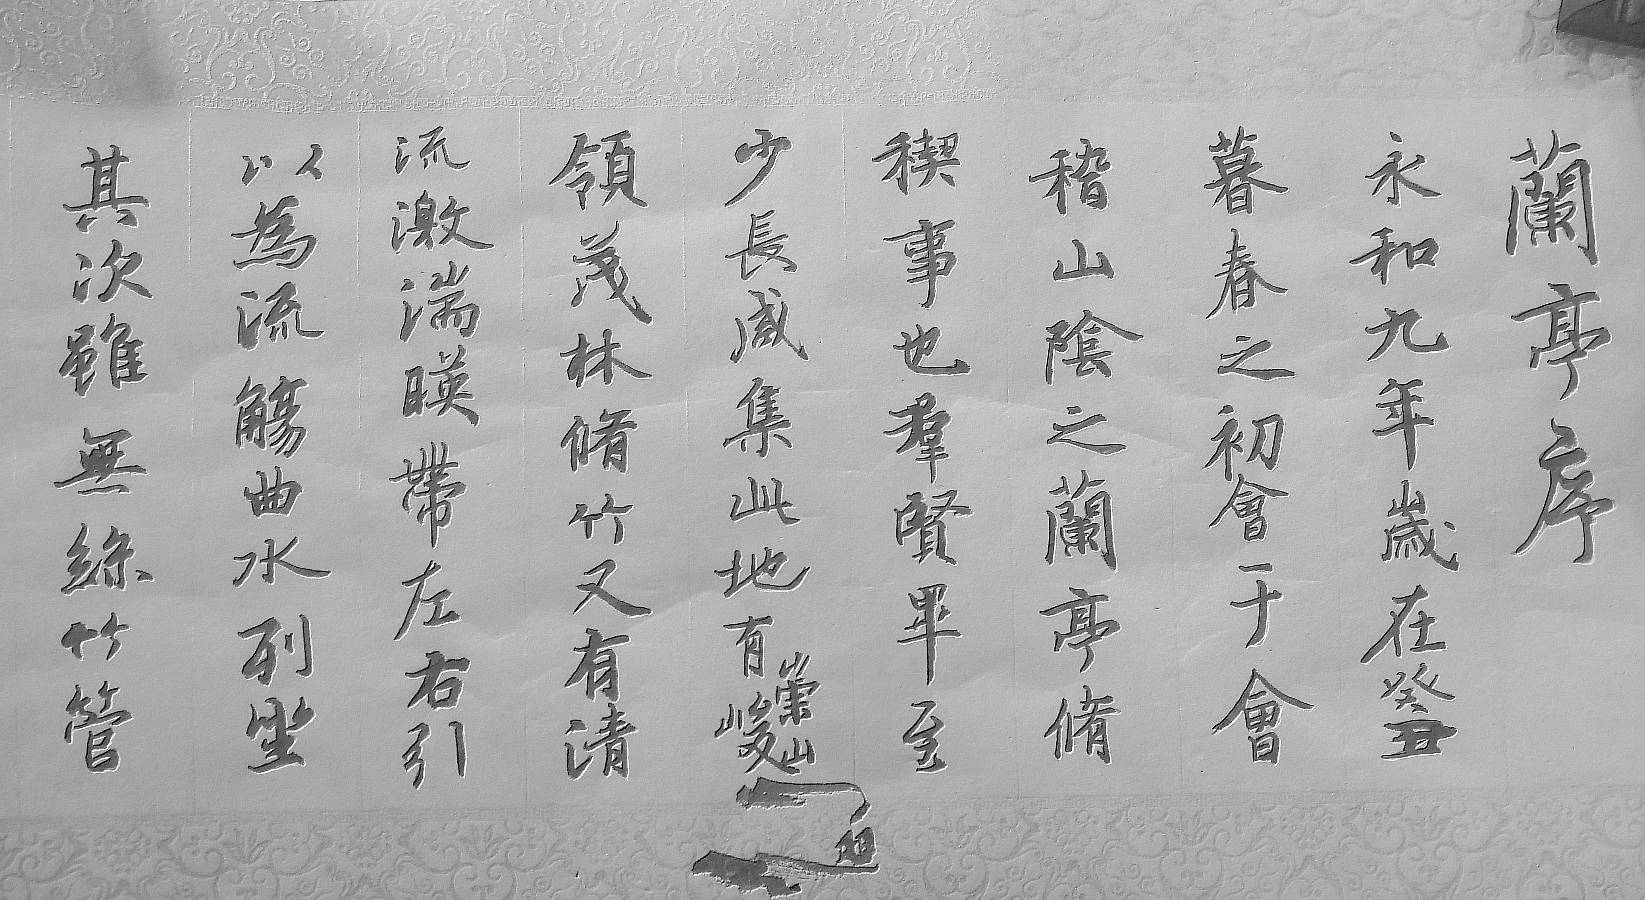 蘭亭序
永和九年歲在癸丑
暮春之初會于會
稽山陰之蘭亭脩
稧事也羣賢畢至
少長咸集此地有崇山峻
領茂林脩竹又有清
流激湍暎帶左右引
以為流觴曲水列坐
其次雖無絲竹管